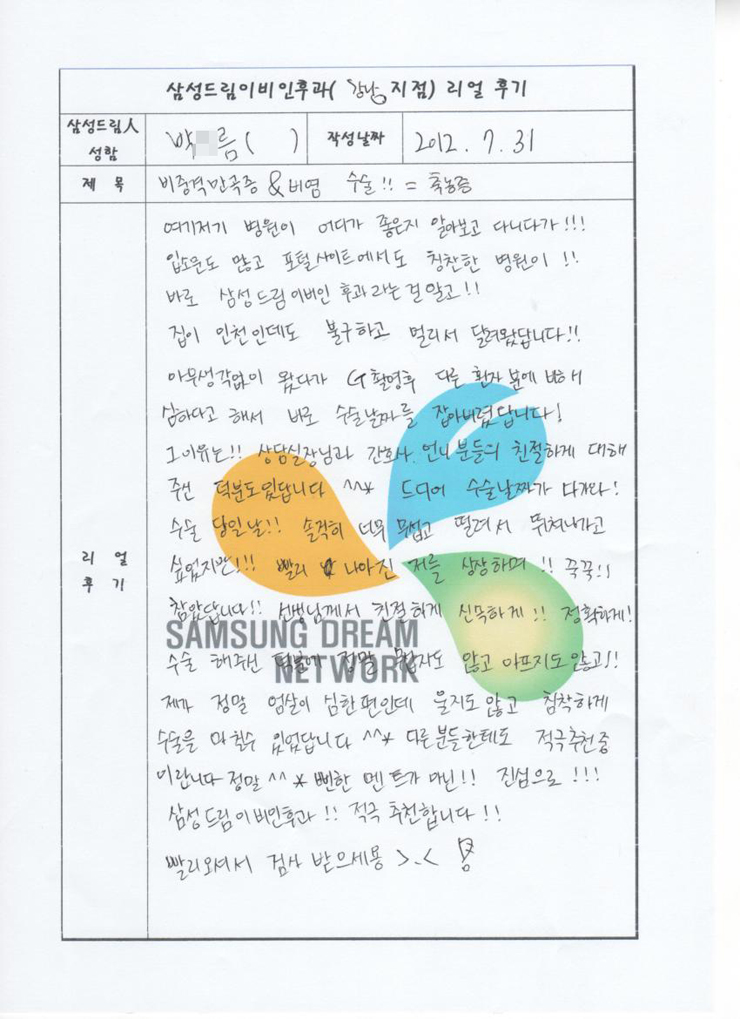 삼성드림이비인후과( 강남 지점) 리얼 후기
삼성드림人
성함
박 름 ( )
작성날짜
2012. 7. 31
제 목
비중격만곡증 & 비염 수술!! = 축농증
리 얼
후 기
여기저기 병원이 어디가 좋은지 알아보고 다니다가!!!
입소문도 많고 포털사이트에서도 칭찬한 병원이 !!
바로 삼성드림이비인후과라는걸 알고!!
집이 인천인데도 불구하고 멀리서 달려왔답니다!!
아무생각없이 왔다가 CT촬영후 다른 환자분에 비해서
심하다고 해서 바로 수술날짜를 잡아버렸답니다!
그이유는!! 상담실장님과 간호사 언니분들의 친절하게 대해
주신 덕분도있답니다 ^^* 드디어 수술날짜가 다가와!
수술 당일날!! 솔직히 너무 무섭고 떨려서 뛰쳐나가고
싶었지만!!! 빨리 나아진 저를 상상하며 !! 꾹꾹!!
참았답니다!! 선생님께서 친절하게 신속하게 !! 정확하게!
SAMSUNG DREAM
NETWORK
수술 해주신 덕분에 정말 무섭지도 않고 아프지도않고!!
제가 정말 엄살이 심한편인데 울지도않고 침착하게
수술을 마칠수 있었답니다 ^^* 다른분들한테도 적극추천중
이랍니다 정말 ^^* 뻔한 멘트가 아닌!! 진심으로 !!!
삼성드림이비인후과 !! 적극 추천합니다 !!
빨리오셔서 검사 받으세용 >.<